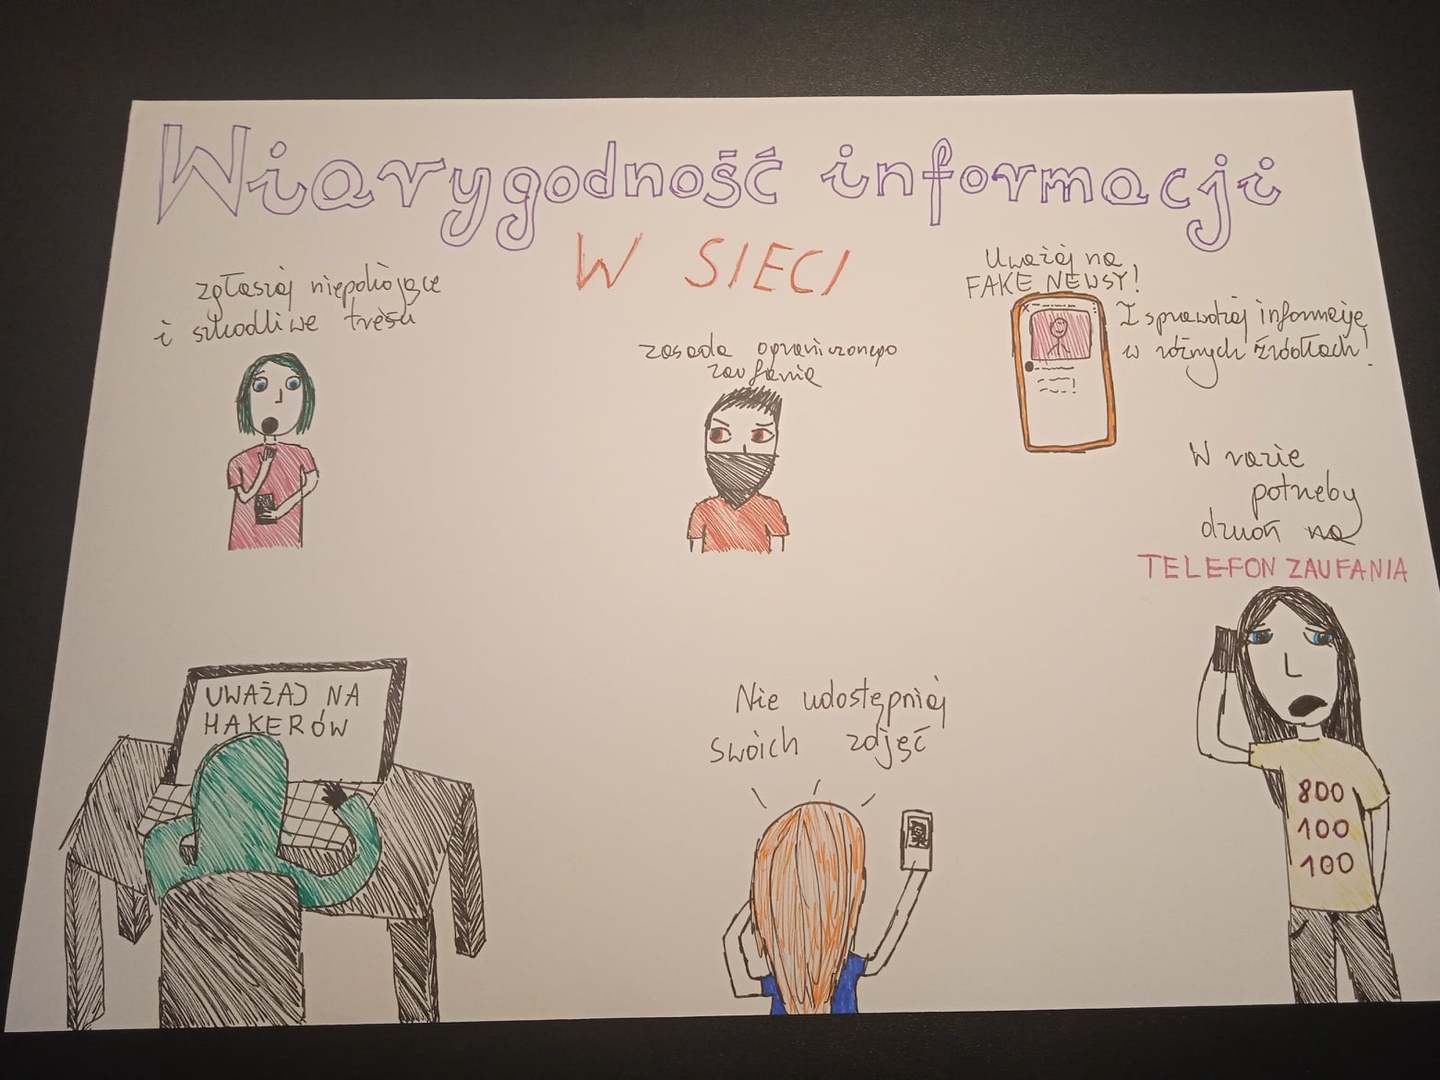 Wiarygodność informacji
W SIECI
zgłaszaj niepokojące
i szkodliwe treści
zasada ograniczonego
zaufania
Uważaj na
FAKE NEWSY!
I sprawdzaj informacje
w różnych źródłach!
W razie
potrzeby
dzwoń na
TELEFON ZAUFANIA
800
100
100
UWAŻAJ NA
HAKERÓW
Nie udostępniaj
swoich zdjęć